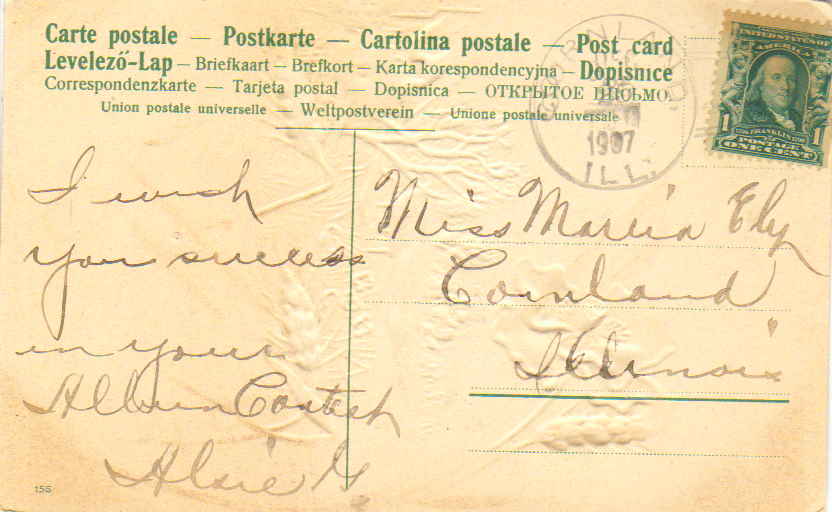 Carte postale — Postkarte — Cartolina postale — Post card
Levelező-Lap — Briefkaart — Brefkort — Karta korespondencyjna — Dopisnice
Correspondenzkarte — Tarjeta postal — Dopisnica — ОТКРЫТОЕ ПИСЬМО.
Union postale universelle — Weltpostverein — Unione postale universale
CORNLAND
1907
ILL.
UNITED STATES OF
AMERICA
FRANKLIN
1 POSTAGE 1
ONE CENT
I wish
you success
in your
Album Contest
Alsie G
Miss Marcia Ely
Cornland
Illinois
155